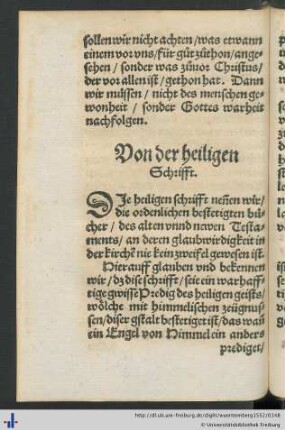 sollen wir nicht achten/was etwann
einem vor vns/für gůt zůthon/ange-
sehen/sonder was zůuor Christus/
der vor allen ist/gethon hat. Dann
wir müssen/nicht des menschen ge-
wonheit/sonder Gottes warheit
nachfolgen.
Von der heiligen
Schrifft.
DJe heiligen schrifft nen̄en wir/
die ordenlichen bestetigten bů-
cher/des alten vnnd newen Testa-
ments/an deren glaubwirdigkeit in
der kirchē nie kein zweiffel gewesen ist.
Hierauff glauben vnd bekennen
wir/dz dise schrifft/seie ein warhaff-
tige gwisse Predig des heiligen geists/
wölche mit himmelischen zeůgnus-
sen/diser gstalt bestetiget ist/das wañ
ein Engel von Himmel ein anders
prediget/
http://dl.ub.uni-freiburg.de/diglit/wuerttemberg1552/0148
© Universitätsbibliothek Freiburg